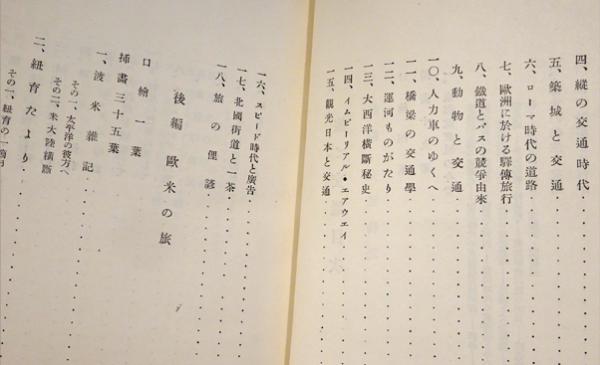 四、縱の交通時代
五、築城と交通
六、ローマ時代の道路
七、歐洲に於ける驛傳旅行
八、鐵道とバスの競爭由來
九、動物と交通
一〇、人力車のゆくへ
一一、橋梁の交通學
一二、運河ものがたり
一三、大西洋橫斷秘史
一四、イムピーリアル・エアウエイ
一五、觀光日本と交通
一六、スピード時代と廣告
一七、北國街道と一茶
一八、旅の俚諺
後編 歐米の旅
口繪一葉
挿畫三十五葉
一、波米雜記
その一、太平洋の彼方へ
その二、米大陸橫斷
二、紐育だより
その一、紐育の一箇月